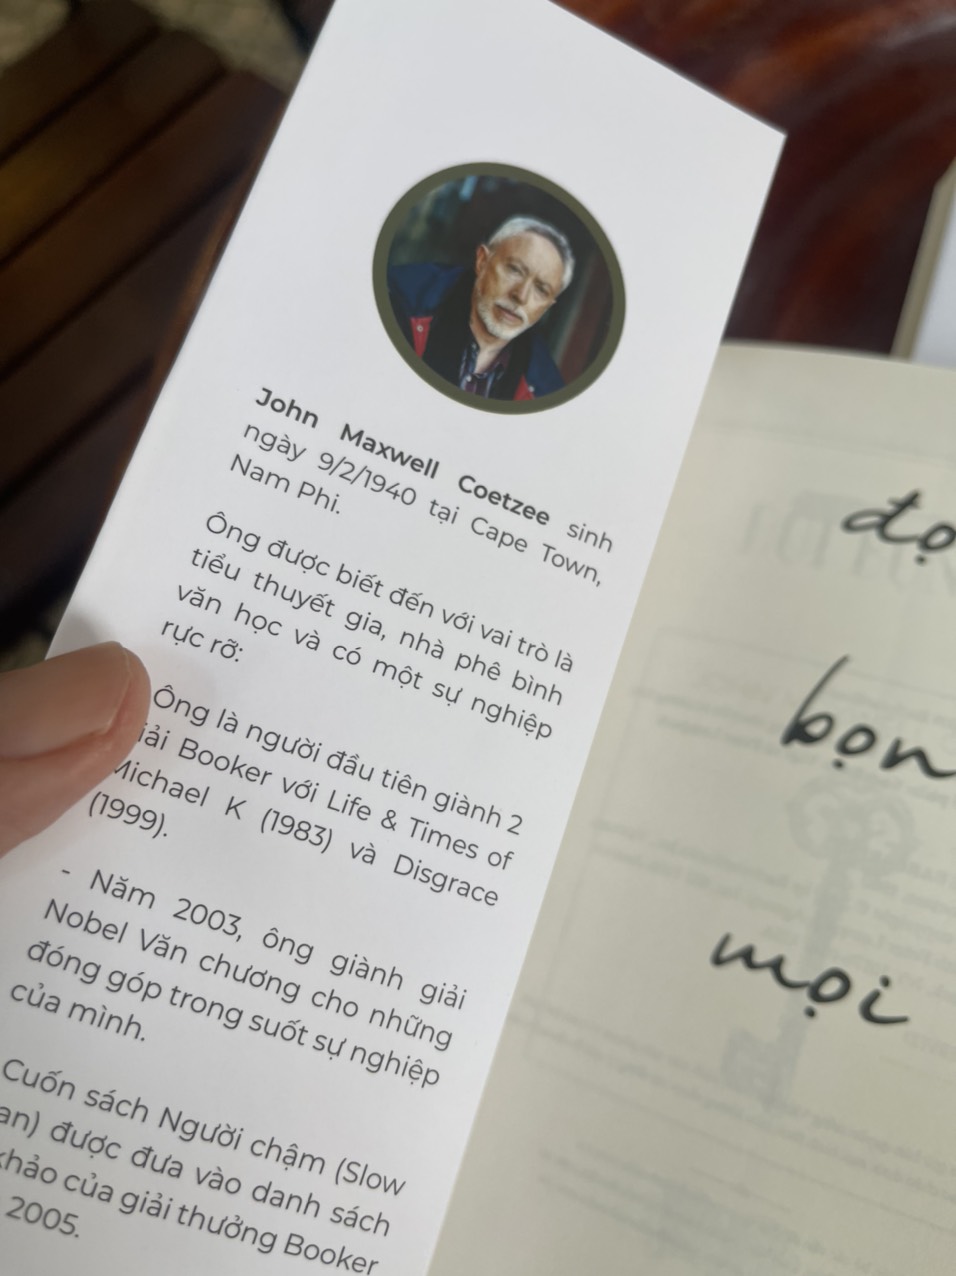 John Maxwell Coetzee sinh
ngày 9/2/1940 tại Cape Town,
Nam Phi.
Ông được biết đến với vai trò là
tiểu thuyết gia, nhà phê bình
văn học và có một sự nghiệp
rực rỡ:
Ông là người đầu tiên giành 2
Booker với Life & Times of
Michael K (1983) và Disgrace
(1999).
- Năm 2003, ông giành giải
Nobel Văn chương cho những
đóng góp trong suốt sự nghiệp
của mình.
Cuốn sách Người chậm (Slow
được đưa vào danh sách
của giải thưởng Booker
2005.
bọn
mọi